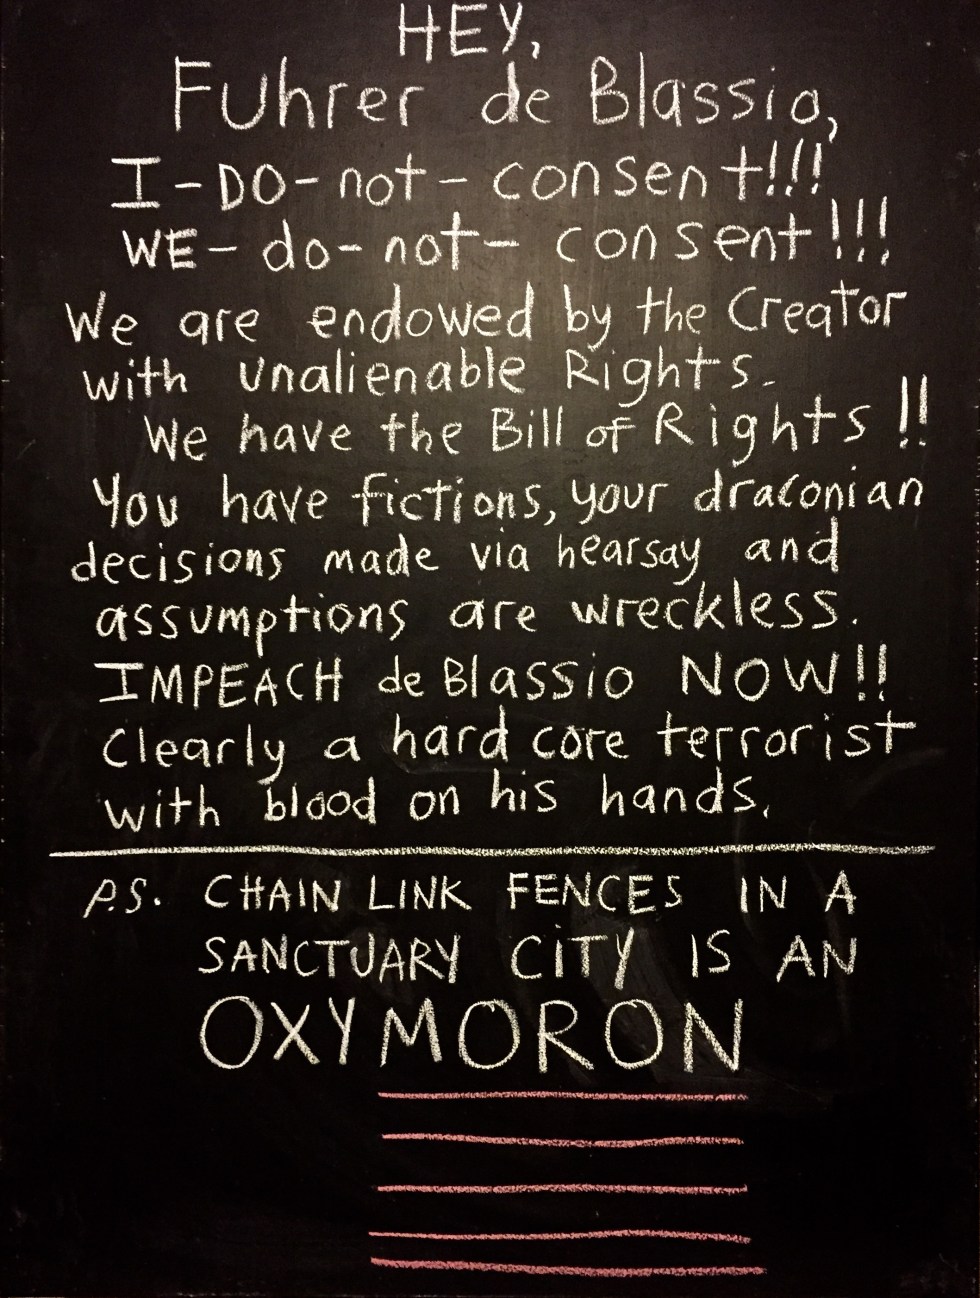 HEY,
Fuhrer de Blassio,
I-DO-not-consent!!!
WE-do-not-consent!!!
We are endowed by the Creator
with unalienable Rights.
We have the Bill of Rights!!
You have fictions, your draconian
decisions made via hearsay and
assumptions are wreckless.
IMPEACH de Blassio NOW!!
Clearly a hard core terrorist
with blood on his hands.
P.S. CHAIN LINK FENCES IN A
SANCTUARY CITY IS AN
OXYMORON